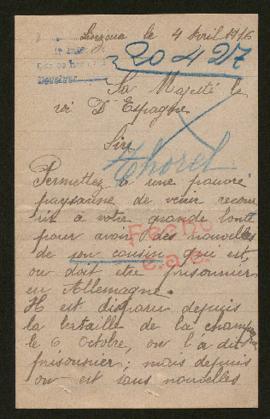 le 4 Avril 1916
20427
Sa Majesté le
roi D'Espagne
Sire
Thorel
Permettez à une pauvre
paysanne de venir recou
rir à votre grande bonté
pour avoir des nouvelles
de son cousin qui est,
ou doit etre prisonnier
en Allemagne.
Fecho
Il est disparu depuis
la bataille de la champagne
le 6 Octobre, on l'a dit
prisonnier; mais depuis
on est sans nouvelles